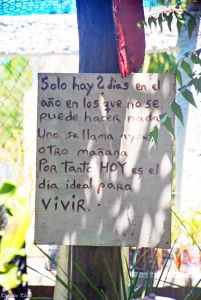 Solo hay 2 dias en el
año en los que no se
puede hacer nada
Uno se llama ayer
otro mañana
Por tanto HOY es el
dia ideal para
VIVIR.